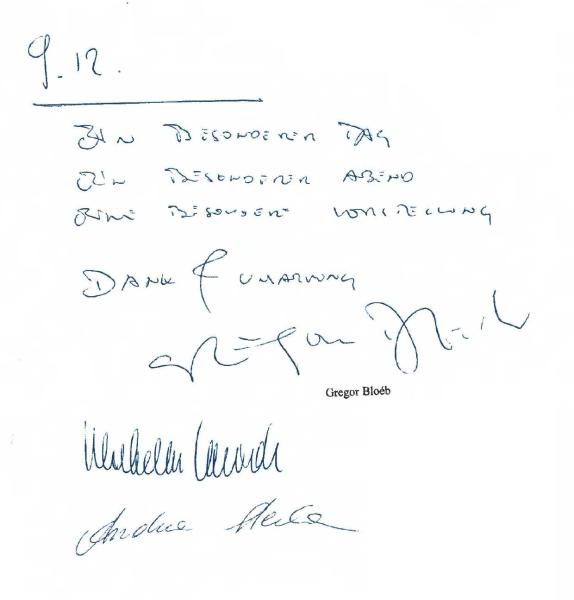 9.12.
EIN BESONDERER TAG
EIN BESONDERER ABEND
EINE BESONDERE VORSTELLUNG
DANK & UMARMUNG
GREGOR BLOÉB
Gregor Bloéb
Andrea